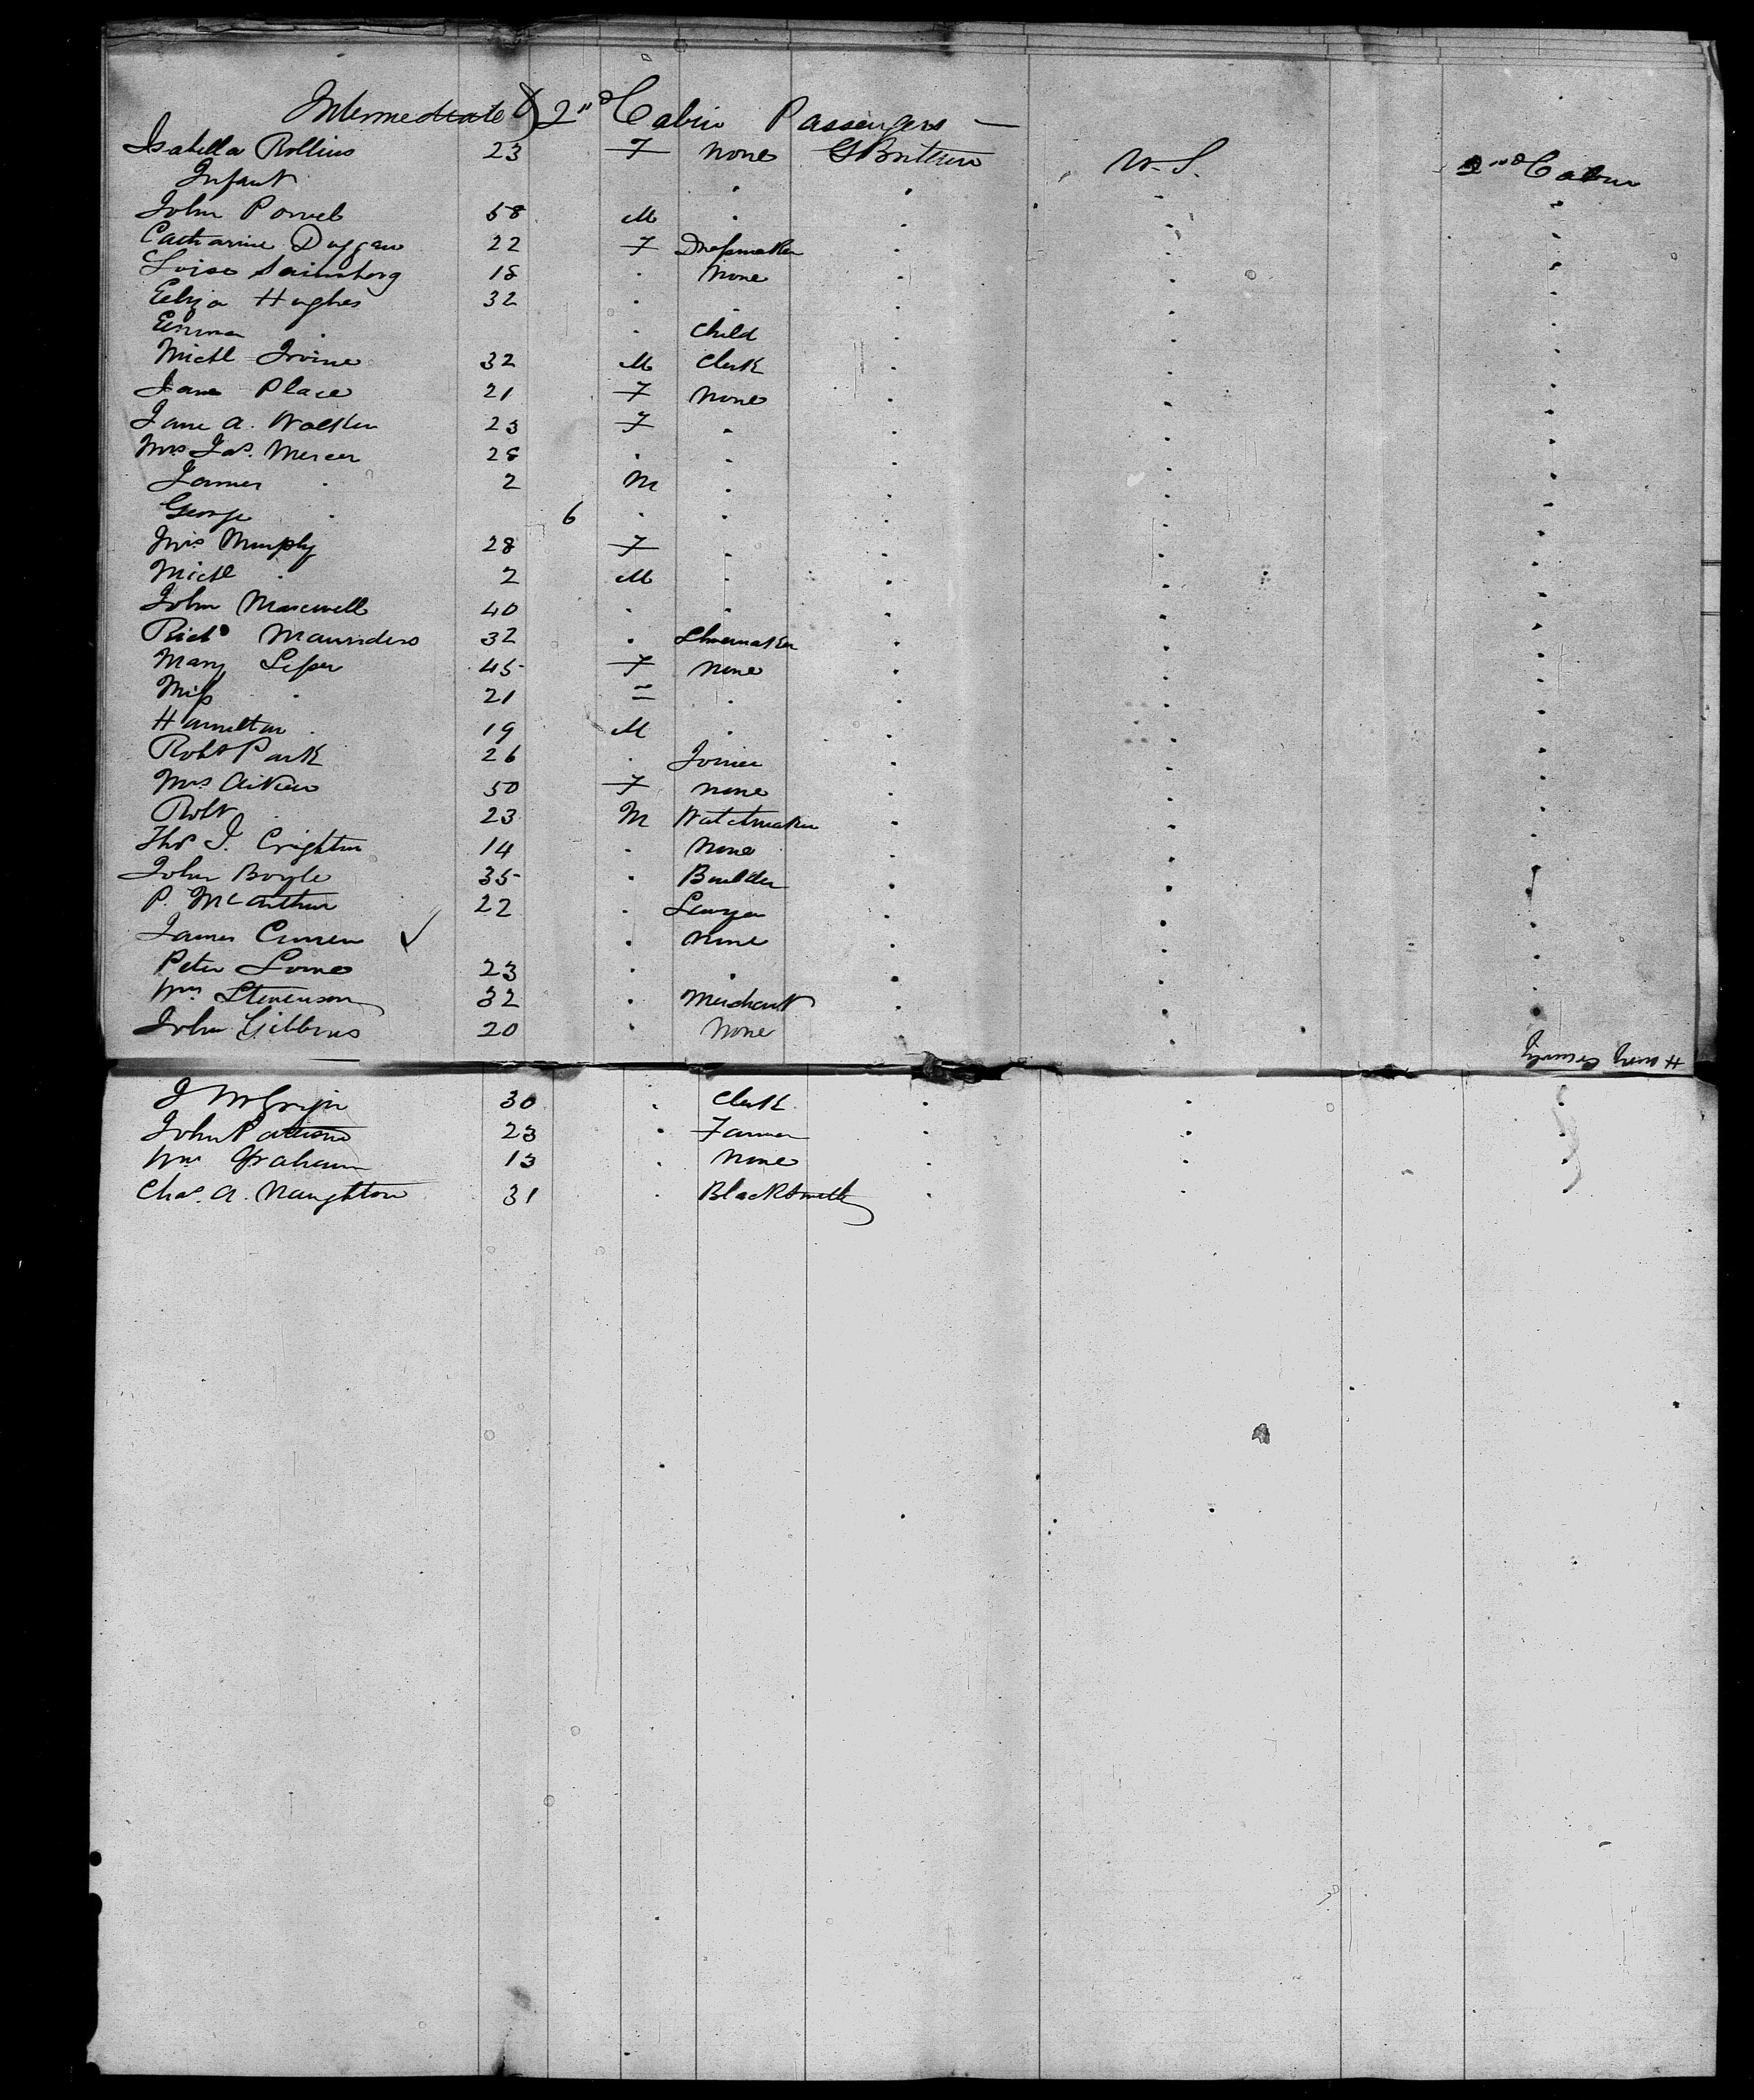 Intermediate 2nd Cabin Passengers —
Isabella Rollins 23 F None G Britain U.S. 2nd Cabin
Infant . . . .
John Powel 58 M . . . .
Catharine Duggan 22 F Dressmaker . . .
18 . None . . .
Eliza Hughes 32 . . . .
Emma . . Child . . .
Michl Irvine 32 M Clerk . . .
Jane Place 21 F None . . .
Jane A. Walker 23 F . . . .
Mrs Jas. Mercer 28 . . . . .
James . 2 M . . . .
George . 6 . . . . .
Mrs Murphy 28 F . . . .
Michl . 2 M . . . .
John Maxwell 40 . . . . .
Richd Maunders 32 . Shoemaker . . .
Mary Leper 45 F None . . .
Miss . 21 = . . . .
Hamilton . 19 M . . . .
Robt Park 26 . Joiner . . .
Mrs Aitken 50 F None . . .
Robt . 23 M Watchmaker . . .
Thos J. Crighton 14 . None . . .
John Boyle 35 . Builder . . .
P. McArthur 22 . Lawyer . . .
James Curren ✓ . None . . .
Peter Lorne 23 . . . . .
Wm Stevenson 32 . Merchant . . .
John Gibbons 20 . None . .
J 30 . Clerk . . .
John Patterson 23 . Farmer . . .
Wm Graham 13 . None . . .
Chas. A. Naughton 31 . Blacksmith . .